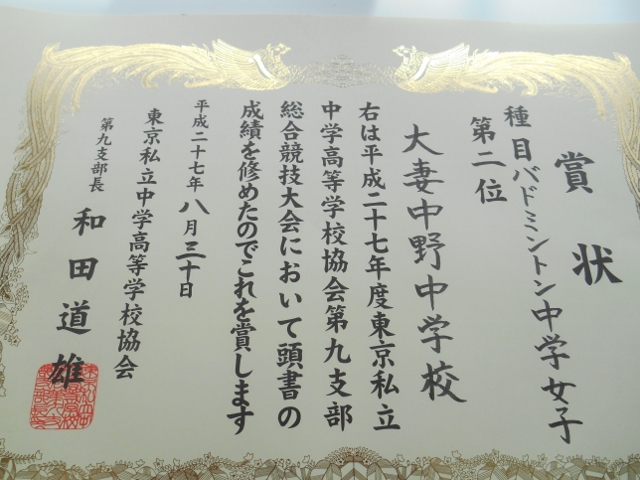 賞状
種目バドミントン中学女子
第二位
大妻中野中学校
右は平成二十七年度東京私立
中学高等学校協会第九支部
総合競技大会において頭書の
成績を修めたのでこれを賞します
平成二十七年八月三十日
東京私立中学高等学校協会
第九支部長
和田道雄